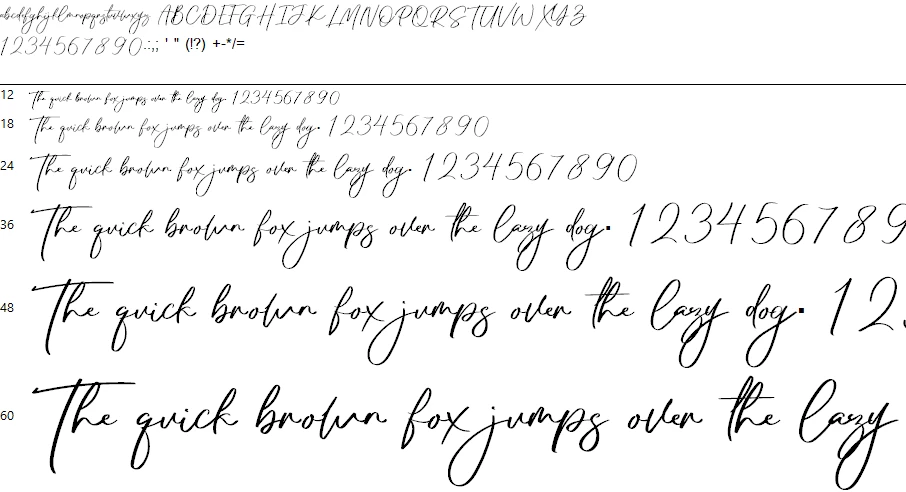 abcdefghijklmnopqrstuvwxyz ABCDEFGHIJKLMNOPQRSTUVWXYZ
1234567890.:,; ' " (!?) +-*/=
12 The quick brown fox jumps over the lazy dog. 1234567890
18 The quick brown fox jumps over the lazy dog. 1234567890
24 The quick brown fox jumps over the lazy dog. 1234567890
36 The quick brown fox jumps over the lazy dog. 123456789
48 The quick brown fox jumps over the lazy dog. 12
60 The quick brown fox jumps over the lazy